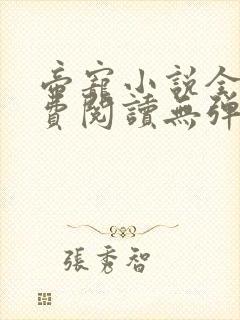 帝寵小説全
費閱讀無彈
張秀智